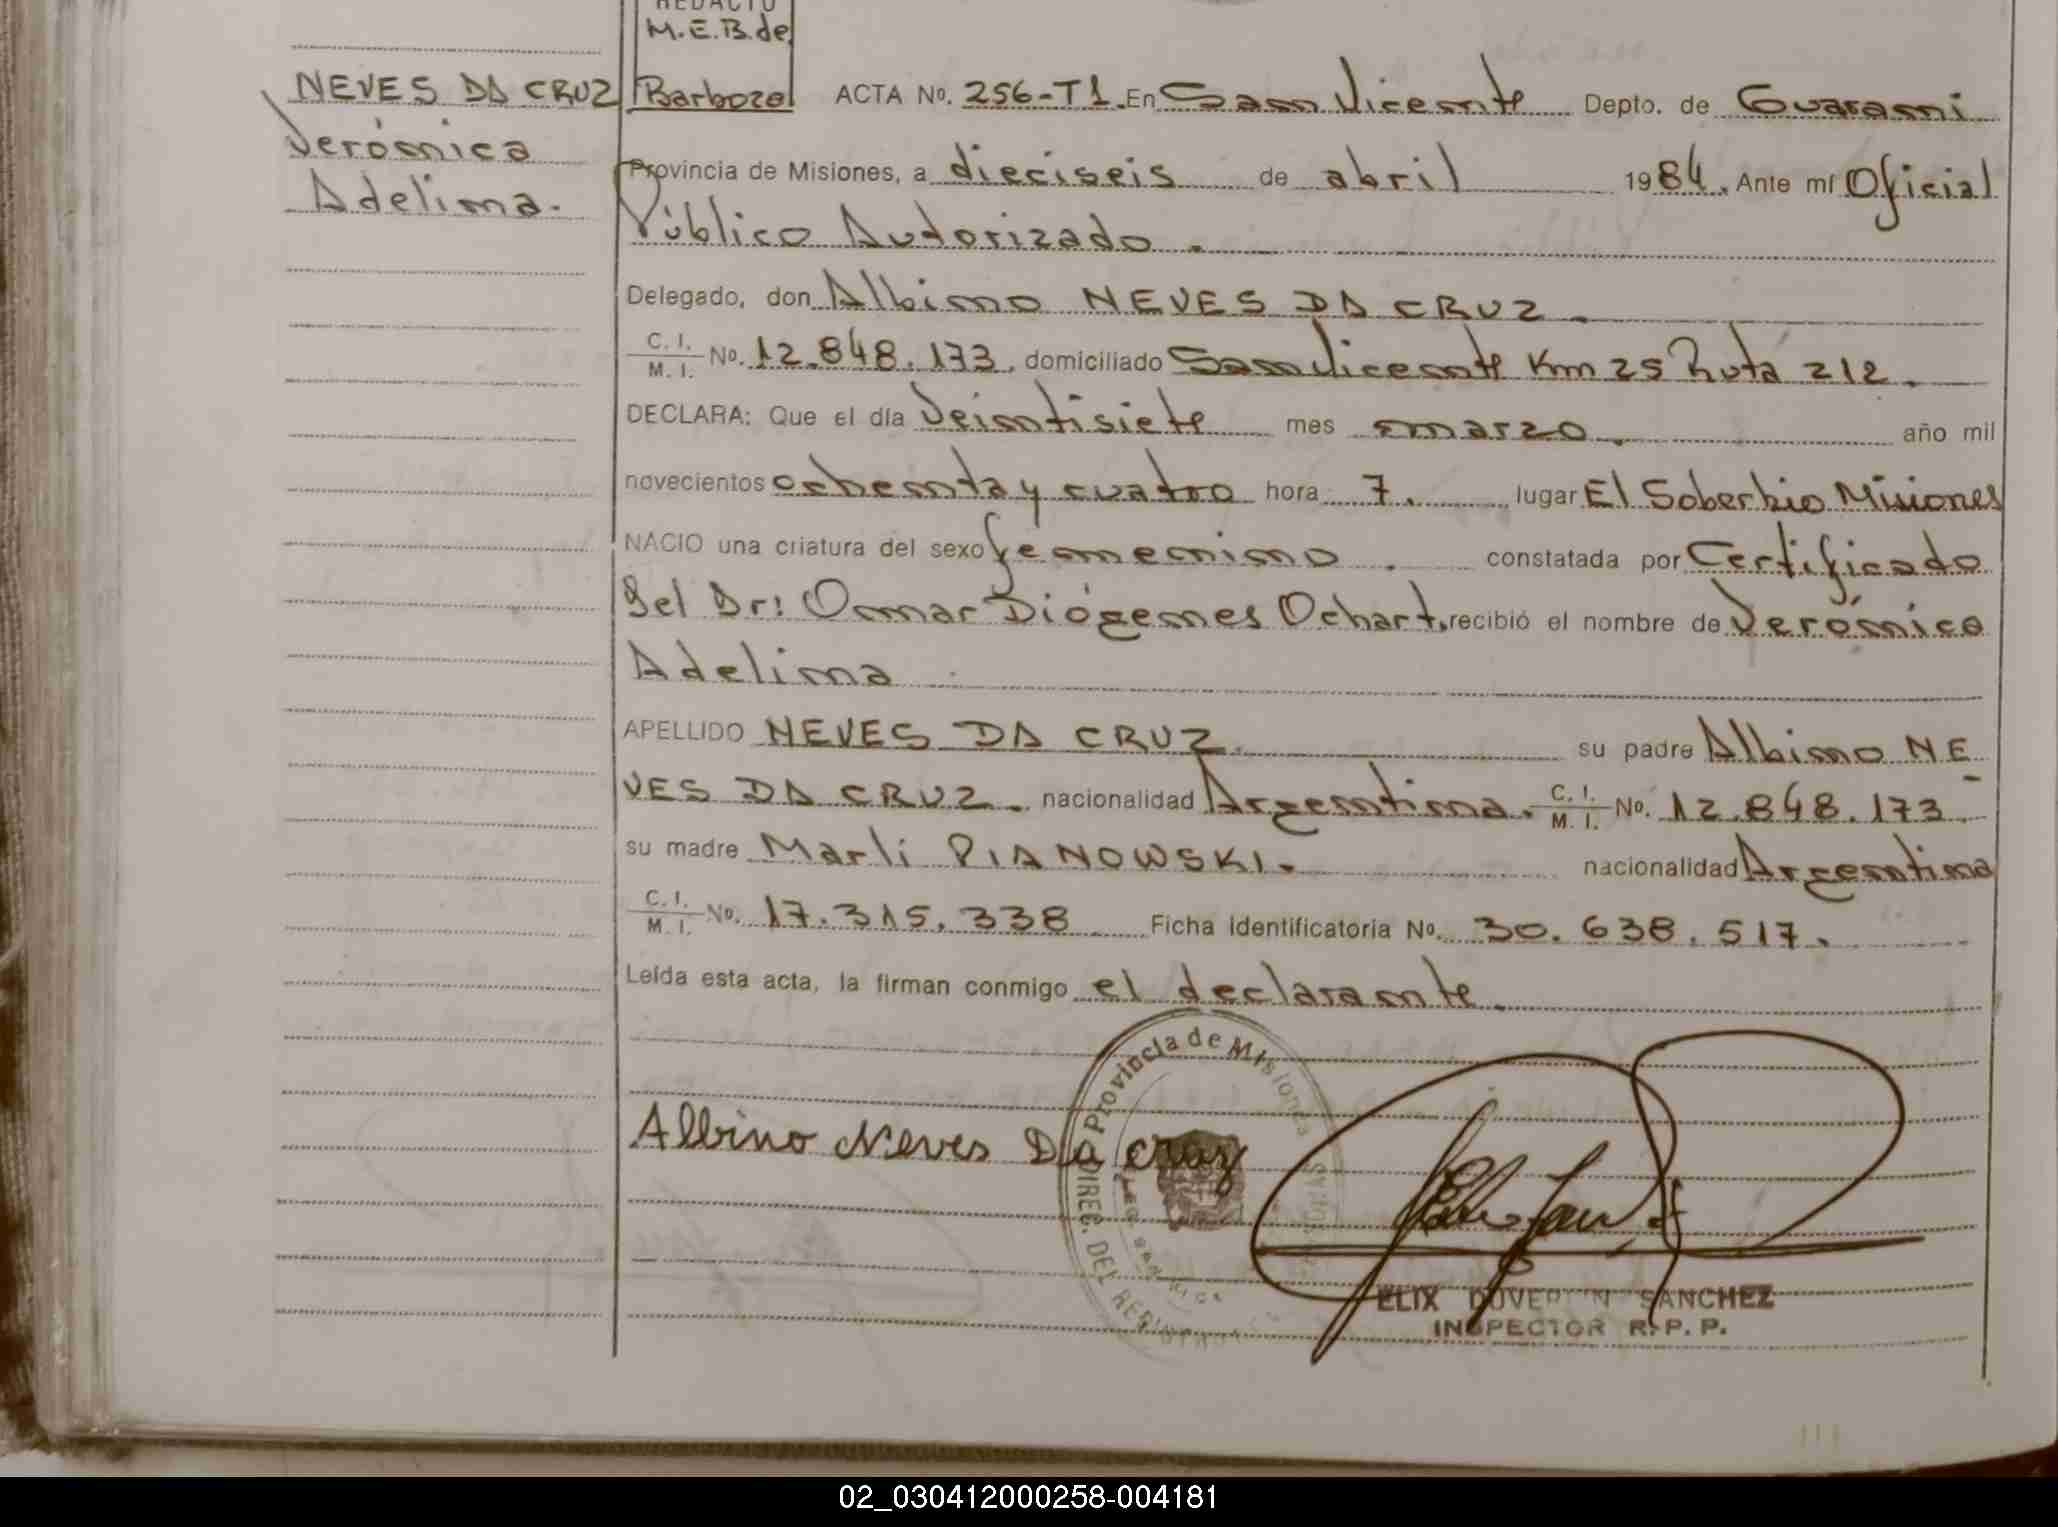 REDACTO
M.E.B.de
Barboza
NEVES DA CRUZ
Verónica
Adelina.
ACTA Nº. 256-T1. En San Vicente Depto. de Guaraní
Provincia de Misiones, a dieciseis de abril 1984. Ante mí Oficial
Público Autorizado.
Delegado, don Albino NEVES DA CRUZ.
C. I. / M. I. Nº. 12.848.173, domiciliado San Vicente Km 25 Ruta 212.
DECLARA: Que el día Veintisiete mes marzo. año mil
novecientos ochenta y cuatro hora 7. lugar El Soberbio Misiones
NACIO una criatura del sexo femenino. constatada por Certificado
del Dr: Omar Diógenes Ochart, recibió el nombre de Verónica
Adelina
APELLIDO NEVES DA CRUZ. su padre Albino NE-
VES DA CRUZ. nacionalidad Argentina. C. I. / M. I. Nº. 12.848.173
su madre Marli PIANOWSKI. nacionalidad Argentina
C. I. / M. I. Nº. 17.315.338 Ficha Identificatoria Nº. 30.638.517.
Leída esta acta, la firman conmigo el declarante.
Provincia de Misiones
DIREC. DEL REGISTRO
Albino Neves Da cruz
ELIX DUVERLIN SANCHEZ
INSPECTOR R.P.P.
02_030412000258-004181